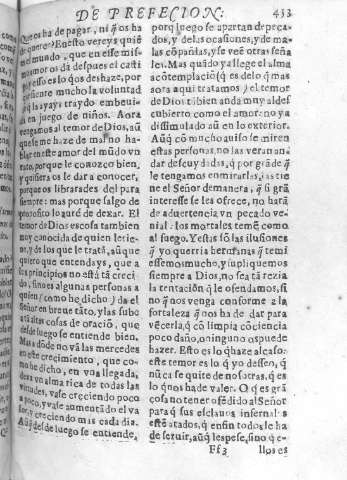 DE PREFECION:
433
Que os ha de pagar, ni q̃ os ha
de querer? En esto vereys quiẽ
es el mundo, que en esse mis-
mo amor os da despues el casti
y esso es lo q̃ os deshaze, por
siente mucho la voluntad
q̃ la ayays traydo embeui
da en juego de niños. Aora
vengamos al temor de Dios, aũ
que le me haze de mal no ha-
blar en este amor del mũdo vn
rato, porque le conozco bien,
y quisiera os le dar a conocer,
porque os librarades del para
siempre: mas porque salgo de
proposito lo auré de dexar. El
temor de Dios es cosa tambien
muy conocida de quien le tie-
ne, y de los que le tratã, aũque
quiero que entendays, que a
los principios no està tã creci
do, sino es algunas personas a
quien (como he dicho) da el
Señor en breue tãto, y las sube
a tã altas cosas de oraciõ, que
desde luego se entiende bien.
Mas dõde no vã las mercedes
en este crecimiento, que co-
mo he dicho, en vna llegada,
dexa vna alma rica de todas las
virtudes, vase creciendo poco
a poco, y vase aumentãdo el va
lor, y creciendo mas cada dia.
Aũq̃ desde luego se entiende,
porq̃ luego se apartan de peca
dos, y de las ocasiones, y de ma-
las cõpañias, y se veẽ otras seña
les. Mas quãdo ya llega el alma
a cõtemplaciõ (q̃ es de lo q̃ mas
aora aqui tratamos) el temor
de Dios tãbien anda muy al des
cubierto como el amor: no va
dissimulado aũ en lo exterior.
Aũq̃ cõ mucho auiso se miren
estas personas, no las veran an-
dar descuydadas, q̃ por grãde q̃
le tengamos en mirarlas, las tie
ne el Señor de manera, q̃ si grã
interesse se les ofrece, no harã
de aduertencia vn pecado ve-
nial: los mortales temẽ como
al fuego. Y estas sõ las ilusiones
q̃ yo querria hermanas q̃ temi
essemos mucho, y supliquemos
siempre a Dios, no sea tã rezia
la tentaciõ q̃ le ofendamos, si
no q̃ nos venga conforme a la
fortaleza q̃ nos ha de dar para
vẽcerla, q̃ cõ limpia cõciencia
poco daño, o ninguno os puede
hazer. Esto es lo q̃ haze al caso:
este temor es lo q̃ yo desseo, q̃
nũca se quite de nosotras, q̃ es
lo q̃ nos ha de valer. O q̃ es grã
cosa no tener ofẽdido al Señor
para q̃ sus esclauos infernales
estẽ atados, q̃ en fin todos le ha
de seruir, aũq̃ les pese, sino q̃ e-
Ff3
llos es